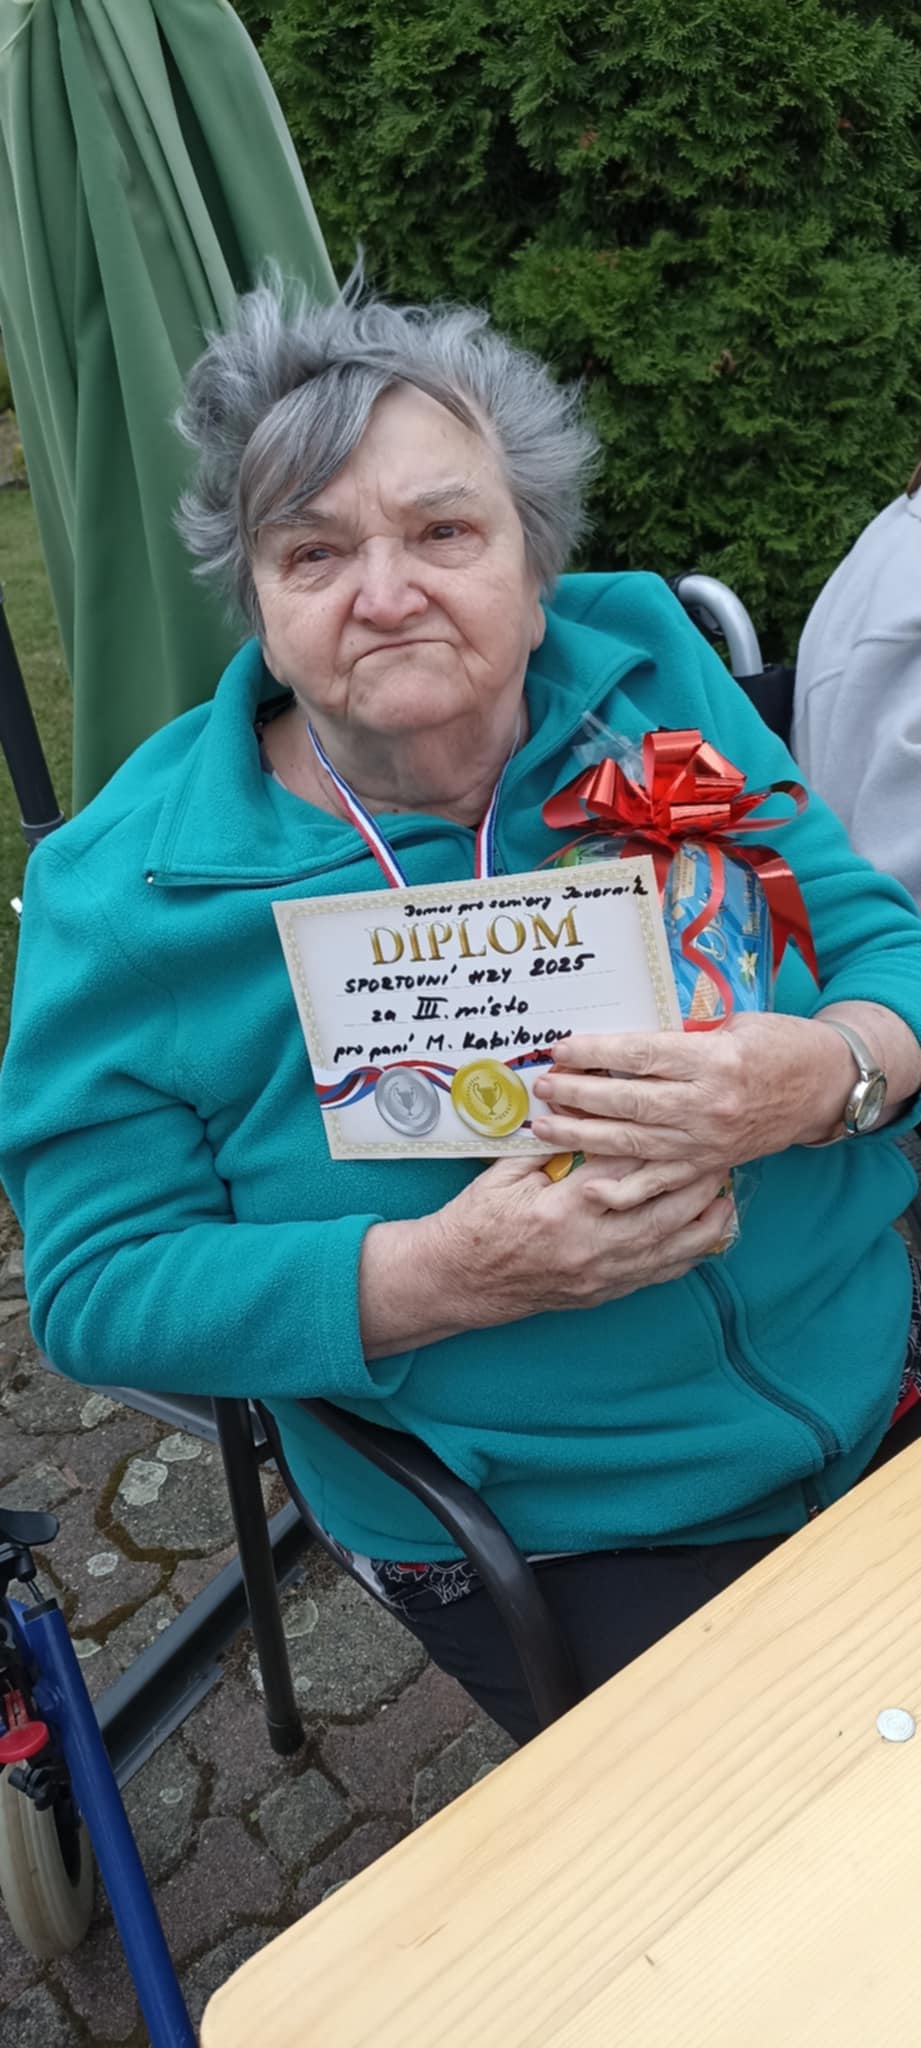 Domov pro seniory Javorník
DIPLOM
SPORTOVNÍ HRY 2025
za III. místo
pro paní M. Kabilovou